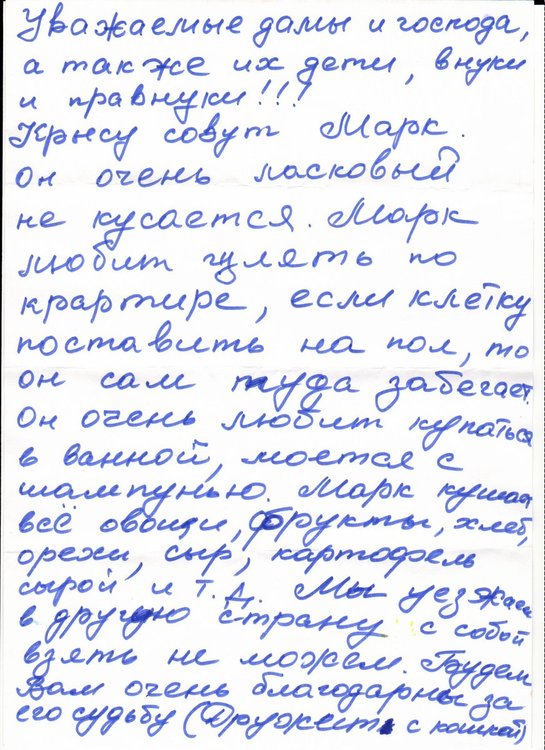 Уважаемые дамы и господа,
а также их дети, внуки
и правнуки!!!
Крысу совут Марк.
Он очень ласковый
не кусается. Марк
любит гулять по
крартире, если клетку
поставить на пол, то
он сам туда забегает
Он очень любит купаться
в ванной, моется с
шампунью. Марк кушает
всё овощи, фрукты, хлеб,
орехи, сыр, картофель
сырой и т.д. Мы уезжаем
в другую страну с собой
взять не можем. Будем
Вам очень благодарны за
его судьбу (Дружит с кошкой)